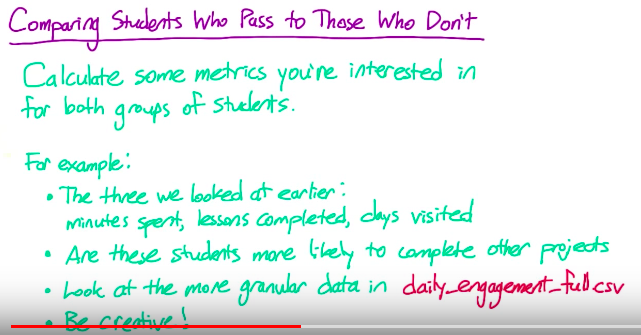 Comparing Students Who Pass to Those Who Don't
Calculate some metrics you're interested in
for both groups of students.
For example:
• The three we looked at earlier:
minutes spent, lessons completed, days visited
• Are these students more likely to complete other projects
• Look at the more granular data in daily_engagement_full.csv
• Be creative!